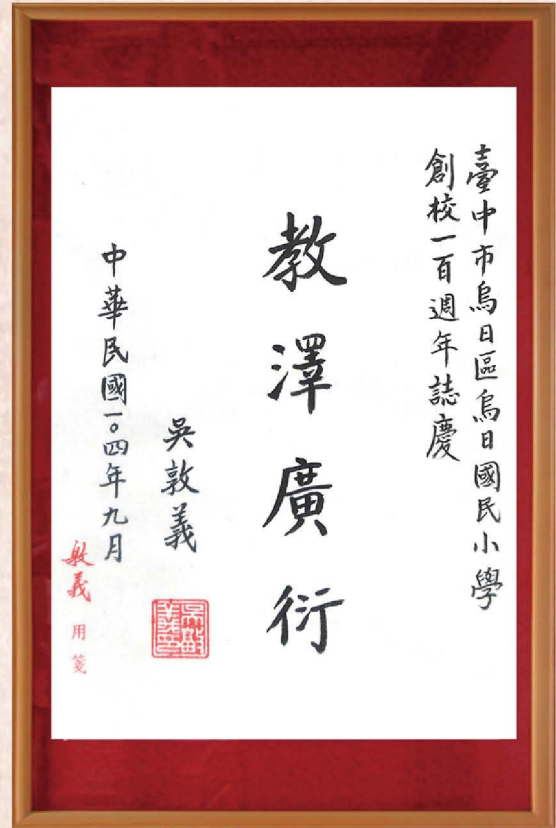 臺中市烏日區烏日國民小學
創校一百週年誌慶
教澤廣衍
吳敦義
吳敦義印
中華民國一〇四年九月
敦義用箋